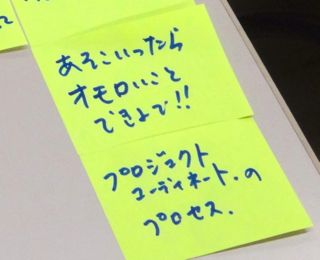 あそこいったら
オモロいこと
できるで!!
プロジェクト
コーディネート.の
プロセス.